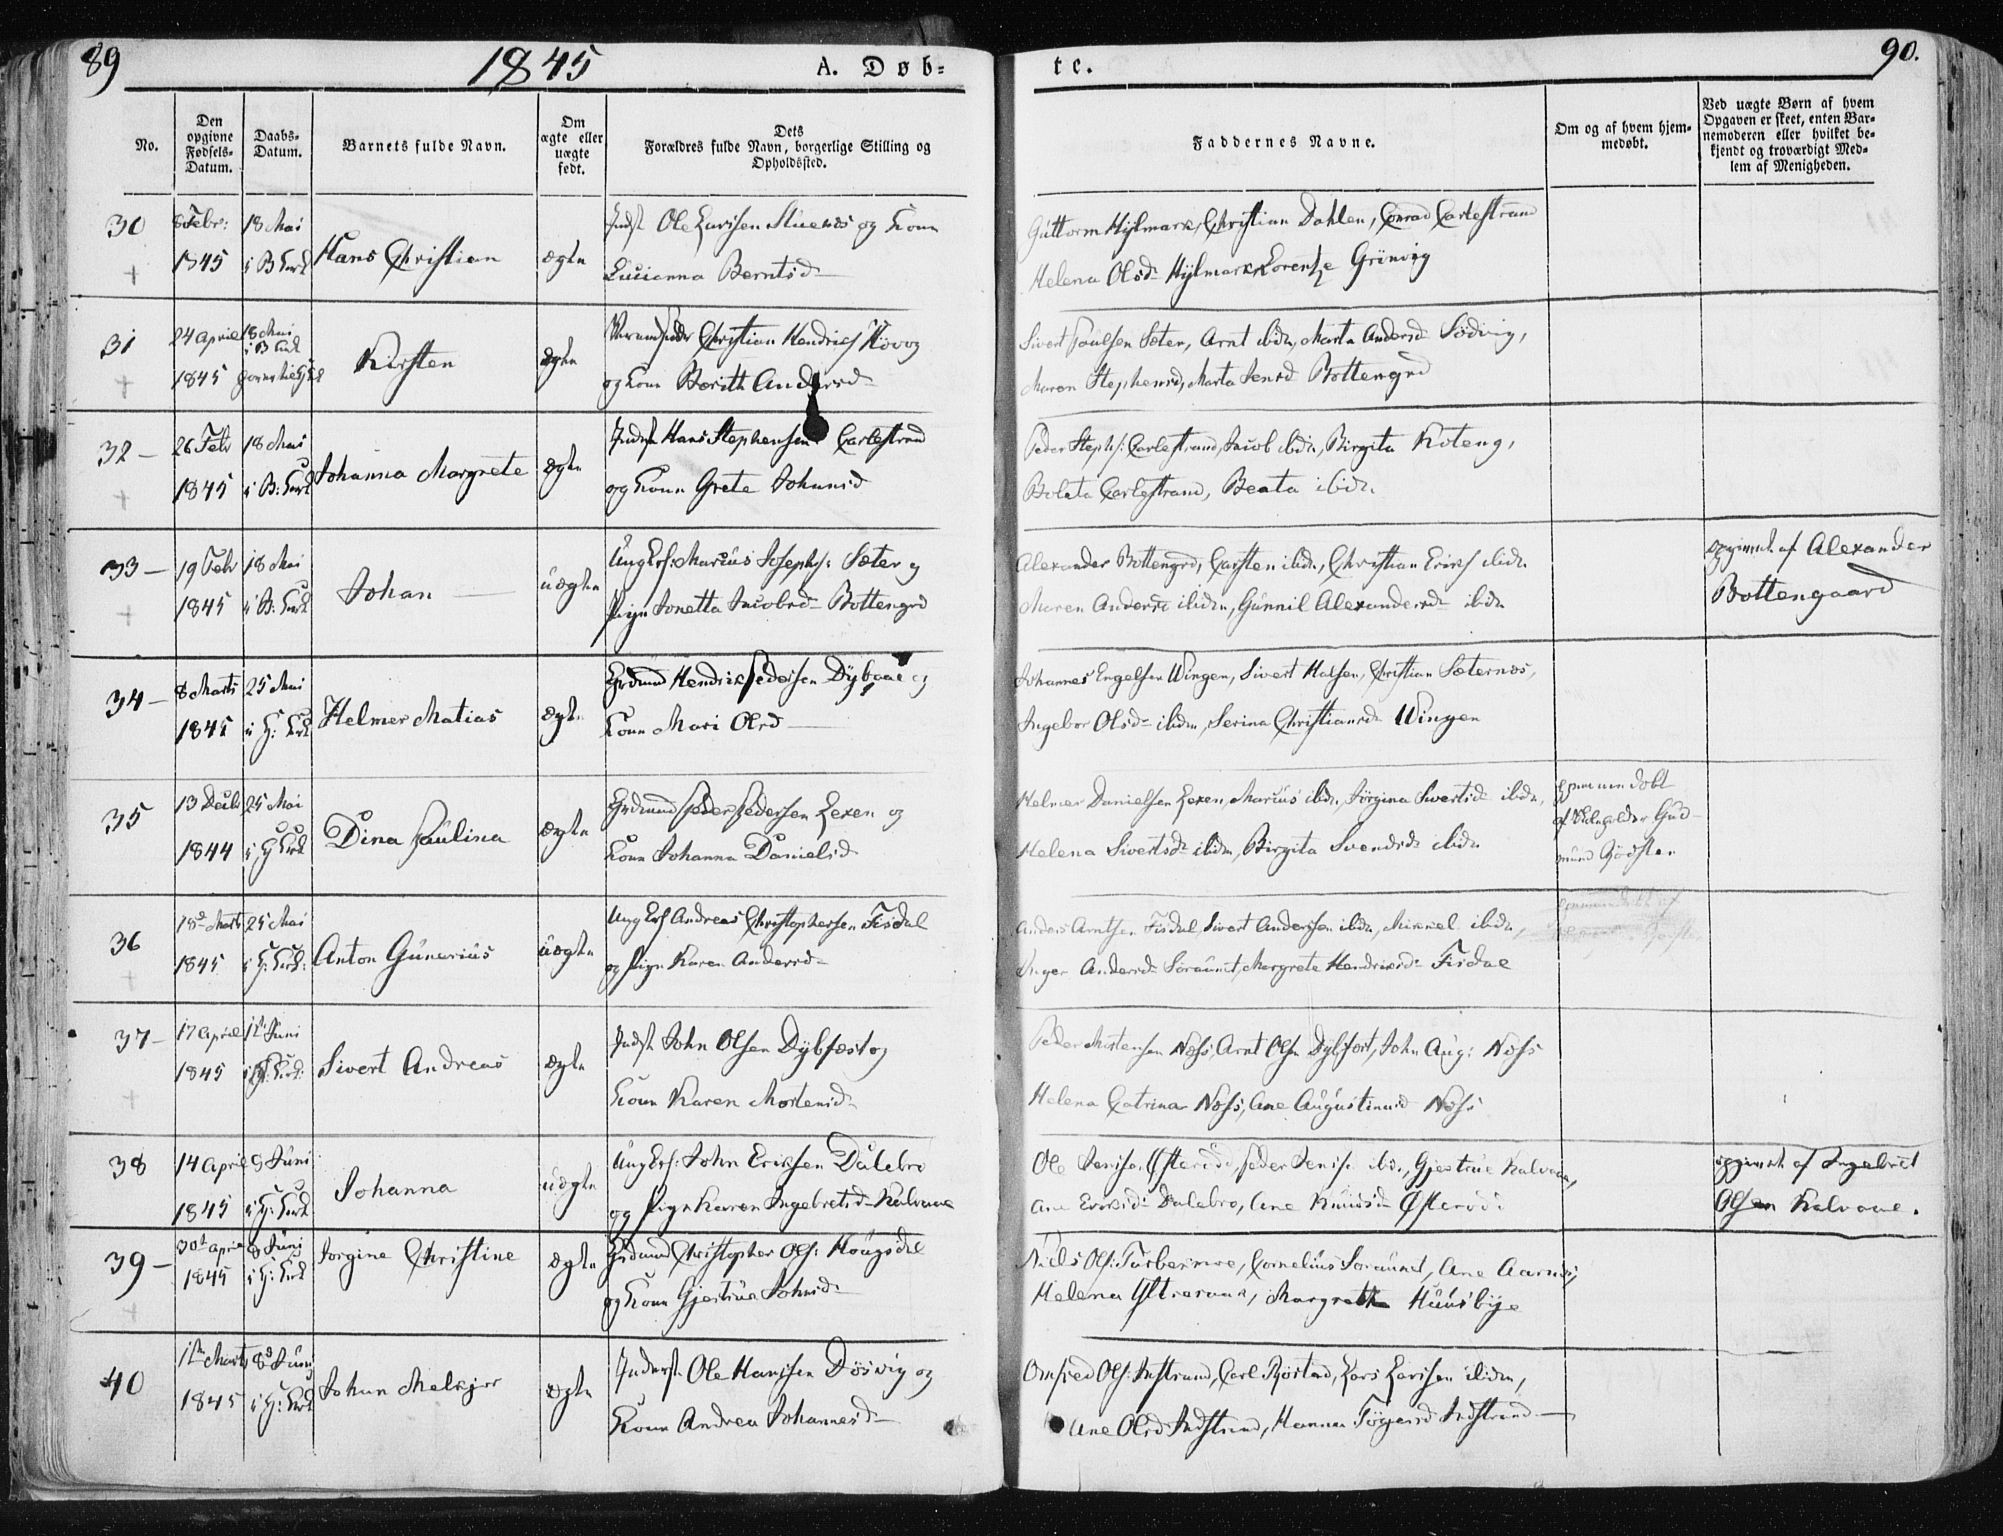 89
1845
A. Døb-
te.
90.
No.
Den opgivne Fødsels-Datum.
Daabs-Datum.
Barnets fulde Navn.
Om ægte eller uægte født.
Dets Forældres fulde Navn, borgerlige Stilling og Opholdssted.
Faddernes Navne.
Om og af hvem hjem-medøbt.
Ved uægte Børn af hvem Opgaven er skeet, enten Bar-nemoderen eller hvilket be-kjendt og troværdigt Med-lem af Menigheden.
30
8 Febr: 1845
18 Mai i B Kirk
Hans Christian
ægte
Inds Ole og Kone
Lucianna Berntsd
Guttorm Hjlmark, Christian Dahlen, Conrad Carlestrand
Helena Olsd Hjlmark, Lorentze Grönvig
31
24 April 1845
18 Mai i B Kirk
Kirsten
ægte
Christian Hendrics
og Kone Bereth Andersd
Sivert Paulsen Sæter, Arnt ibidn, Marta Andersd Södvig,
Maren Stephensd, Marta Jensd Bottengrd
32
26 Feb 1845
18 Mai i B: Kirk
Johanna Margrete
ægte
Inds Hans Stephensen Carlestrand
og Kone Grete Johansd
Peder Steph: Carlestrand, Jacob ibidn, Birgita Koteng,
Boleta Carlestrand, Beata ibidn
33
19 Feb 1845
18 Mai i B: Kirk
Johan
uægte
Ung Erf: Marcus Joseph: Sæter og
Pign Jonetta Jacobsd Bottengrd
Alexander Bottengrd, Carsten ibidn, Christian Erics ibidn
Maren Andersd ibidn, Gunnil Alexandersd ibidn
opgivet af Alexander
Bottengaard
34
8 Marts 1845
25 Mai i H: Kirk
Helmer Matias
ægte
Grdmand Hendrik Pedersen Dybvad og
Kone Mari Olsd
Johannes Engelsen Wingen, Sivert Halsen, Christian Sæternæs,
Ingebor Olsd ibidn, Serina Christiansd Wingen
35
13 Decbr 1844
25 Mai i H Kirk
Dina Paulina
ægte
Grdmand Peder Pedersen Lexen og
Kone Johanna Danielsd
Helmer Danielsen Lexen, Marius ibidn, Jörgina Sivertsd ibidn,
Helena Sivertsd ibidn, Birgita Svendsd ibidn
Hjemmedöbt
af Gud-
mund Rödsten
36
18d Marts 1845
25 Mai i H: Kirk:
Anton Gunerius
uægte
Ung Erf Andreas Christophersen Fisdal
og Pign Karen Andersd
Anders Arntsen Fisdal, Sivert Anderssen ibidn, Mikkel ibidn,
Inger Andersd Soraunet, Margrete Hendriksd Fisdal
37
17 April 1845
1ste Juni
Sivert Andreas
ægte
Inds John Olsen Dybfæst og
Kone Karen Mortensd
Peder Mortensen Næss, Arnt Olsen Dybfæst, John Aug: Næss
Helena Catrina Næss, Ane Augustinusd Næss
38
14 April 1845
8 Juni i H: Kirk
Johanna
uægte
Ung Erf: John Eriksen Dalebro
og Pign Karen Ingebretsd Kalvaae
Ole Jenssen Österöd, Peder Jens ibidn, Gjertrue Kalvaae,
Ane Eriksd Dalebro, Ane Knudsd Österöd
opgivet af Ingebret
Olsen Kalvaae.
39
30te April 1845
8 Juni i H: Kirk
Jorgine Christine
ægte
Grdmand Christopher Ols: Hougsdal
og Kone Gjertrue Johnsd
Niels Ols: Turbermoe, Cornelius Soraunet, Ane
Helena, Margrethe Huusbye
40
Marts 1845
8d Juni i H: Kirk
Johan Melkjor
ægte
Inderst Ole Hanssen Dösvig og
Kone Andrea Johannesd
Omfred Ols: Indstrand, Carl Rostad, Lars Larssen ibidn,
Ane Olsd Indstrand, Hanna Indstrand